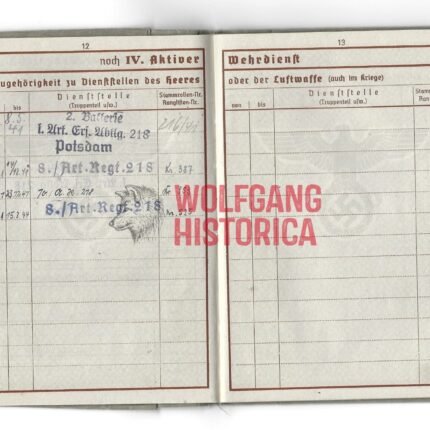 12
noch IV. Aktiver
ugehörigkeit zu Dienststellen des Heeres
bis
Dienststelle
(Truppenteil usw.)
Stammrollen-Nr.
Rangliſten-Nr.
8.3.
41
2. Batterie
l. Art. Erſ. Abtlg. 218
Potsdam
216/41
8./Art.Regt.218
Nr. 387
8./Art.Regt.218
15.3.44
13
Wehrdienst
oder der Luftwaffe (auch im Kriege)
von
bis
Dienststelle
(Truppenteil usw.)
Stammrollen-Nr.
Rangliſten-Nr.
WOLFGANG
HISTORICA